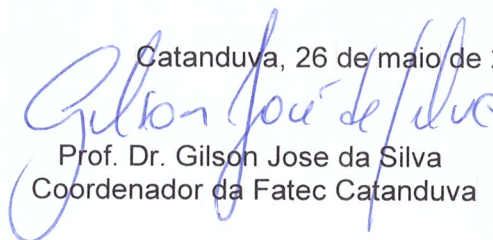 Catanduva, 26 de maio de 2
Gilson José de Silva
Prof. Dr. Gilson Jose da Silva
Coordenador da Fatec Catanduva